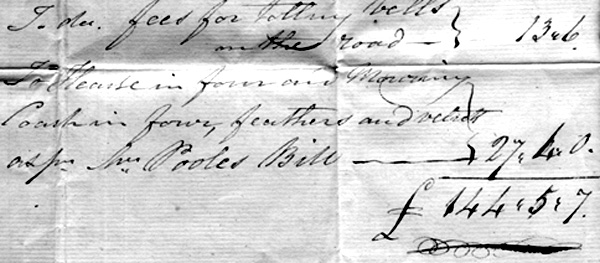 To do. fees for tolling bells
on the road — } 13,, 6.
To Hearse in four and Mourning
Coach in four, feathers and velvets
as pr. Poole's Bill — } 27,, 4,, 0.
£ 144,, 5,, 7.